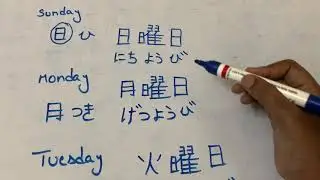 Sunday
日 ひ 日曜日
にちようび
Monday
月曜日
月 つき げつようび
Tuesday 火曜日